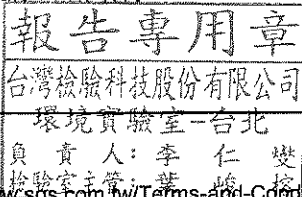 報告專用章
台灣檢驗科技股份有限公司
環境實驗室-台北
負責人：李仁燮
檢驗室主管：葉峻
w.sgs.com.tw/Terms-and-Cond